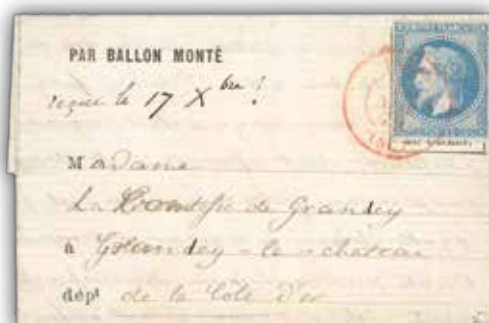 PAR BALLON MONTÉ
reçue le 17 Xbre !
Madame
La Comtesse de Grancey
à Grancey-le-chateau
dépt de la Côte d'or